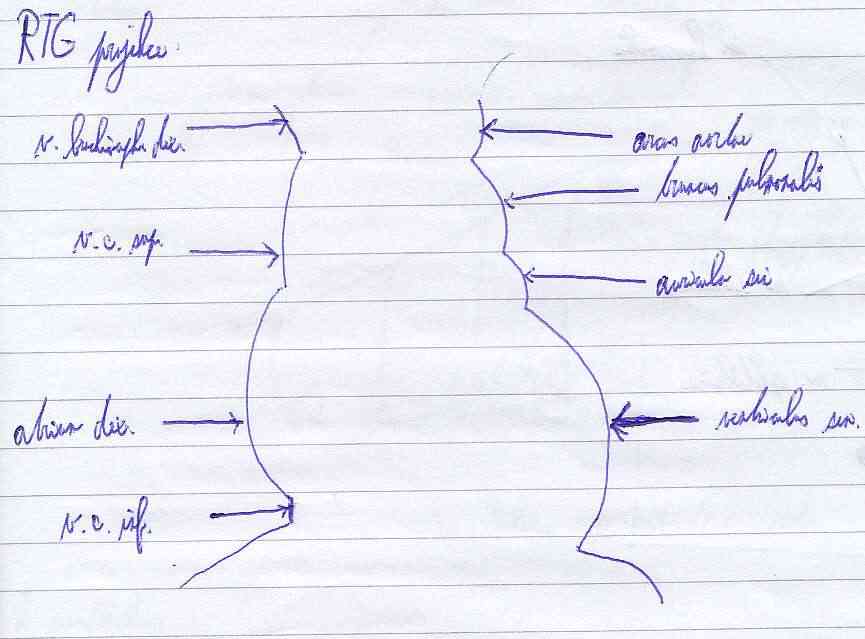 RTG projekce
v. brachioceph. dex.
v. c. sup.
atrium dex.
v. c. inf.
arcus aortae
truncus pulmonalis
auricula sin
ventriculus sin.